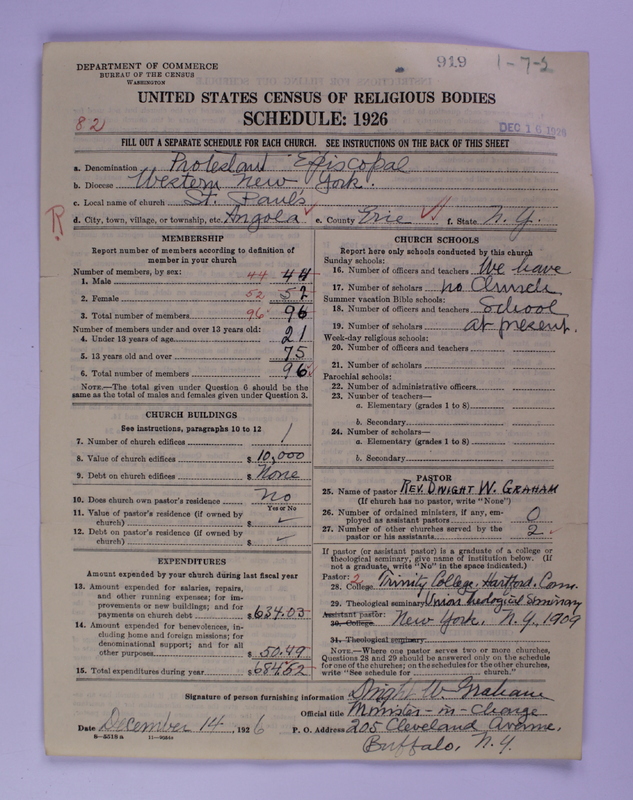 919 1-7-2
DEPARTMENT OF COMMERCE
BUREAU OF THE CENSUS
WASHINGTON
UNITED STATES CENSUS OF RELIGIOUS BODIES
SCHEDULE: 1926
82
DEC 16 1926
FILL OUT A SEPARATE SCHEDULE FOR EACH CHURCH. SEE INSTRUCTIONS ON THE BACK OF THIS SHEET
a. Denomination Protestant Episcopal
b. Diocese Western New York.
c. Local name of church St. Paul's
d. City, town, village, or township, etc. Angola e. County Erie f. State N.Y.
R
MEMBERSHIP
Report number of members according to definition of
member in your church
Number of members, by sex:
1. Male 44 44
2. Female 52 52
3. Total number of members 96 96
Number of members under and over 13 years old:
4. Under 13 years of age 21
5. 13 years old and over 75
6. Total number of members 96
NOTE.—The total given under Question 6 should be the
same as the total of males and females given under Question 3.
CHURCH BUILDINGS
See instructions, paragraphs 10 to 12
7. Number of church edifices 1
8. Value of church edifices $ 10,000
9. Debt on church edifices $ None
10. Does church own pastor's residence No
Yes or No
11. Value of pastor's residence (if owned by
church) $
12. Debt on pastor's residence (if owned by
church) $
EXPENDITURES
Amount expended by your church during last fiscal year
13. Amount expended for salaries, repairs,
and other running expenses; for im-
provements or new buildings; and for
payments on church debt $ 634.03
14. Amount expended for benevolences, in-
cluding home and foreign missions; for
denominational support; and for all
other purposes $ 50.49
15. Total expenditures during year $ 684.52
CHURCH SCHOOLS
Report here only schools conducted by this church
Sunday schools:
16. Number of officers and teachers We have
17. Number of scholars no Church
Summer vacation Bible schools:
18. Number of officers and teachers School
19. Number of scholars at present.
Week-day religious schools:
20. Number of officers and teachers
21. Number of scholars
Parochial schools:
22. Number of administrative officers
23. Number of teachers—
a. Elementary (grades 1 to 8)
b. Secondary
24. Number of scholars—
a. Elementary (grades 1 to 8)
b. Secondary
PASTOR
25. Name of pastor REV. DWIGHT W. GRAHAM
(If church has no pastor, write "None")
26. Number of ordained ministers, if any, em-
ployed as assistant pastors 0
27. Number of other churches served by the
pastor or his assistants 2
If pastor (or assistant pastor) is a graduate of a college or
theological seminary, give name of institution below. (If
not a graduate, write "No" in the space indicated.)
Pastor: 2
28. College Trinity College, Hartford, Conn.
29. Theological seminary Union Theological Seminary
Assistant pastor:
30. College New York, N.Y. 1909
31. Theological seminary
NOTE.—Where one pastor serves two or more churches,
Questions 28 and 29 should be answered only on the schedule
for one of the churches; on the schedules for the other churches,
write "See schedule for church."
Signature of person furnishing information Dwight W. Graham
Official title Minister-in-Charge
Date December 14, 1926 P. O. Address 205 Cleveland Avenue,
Buffalo, N.Y.